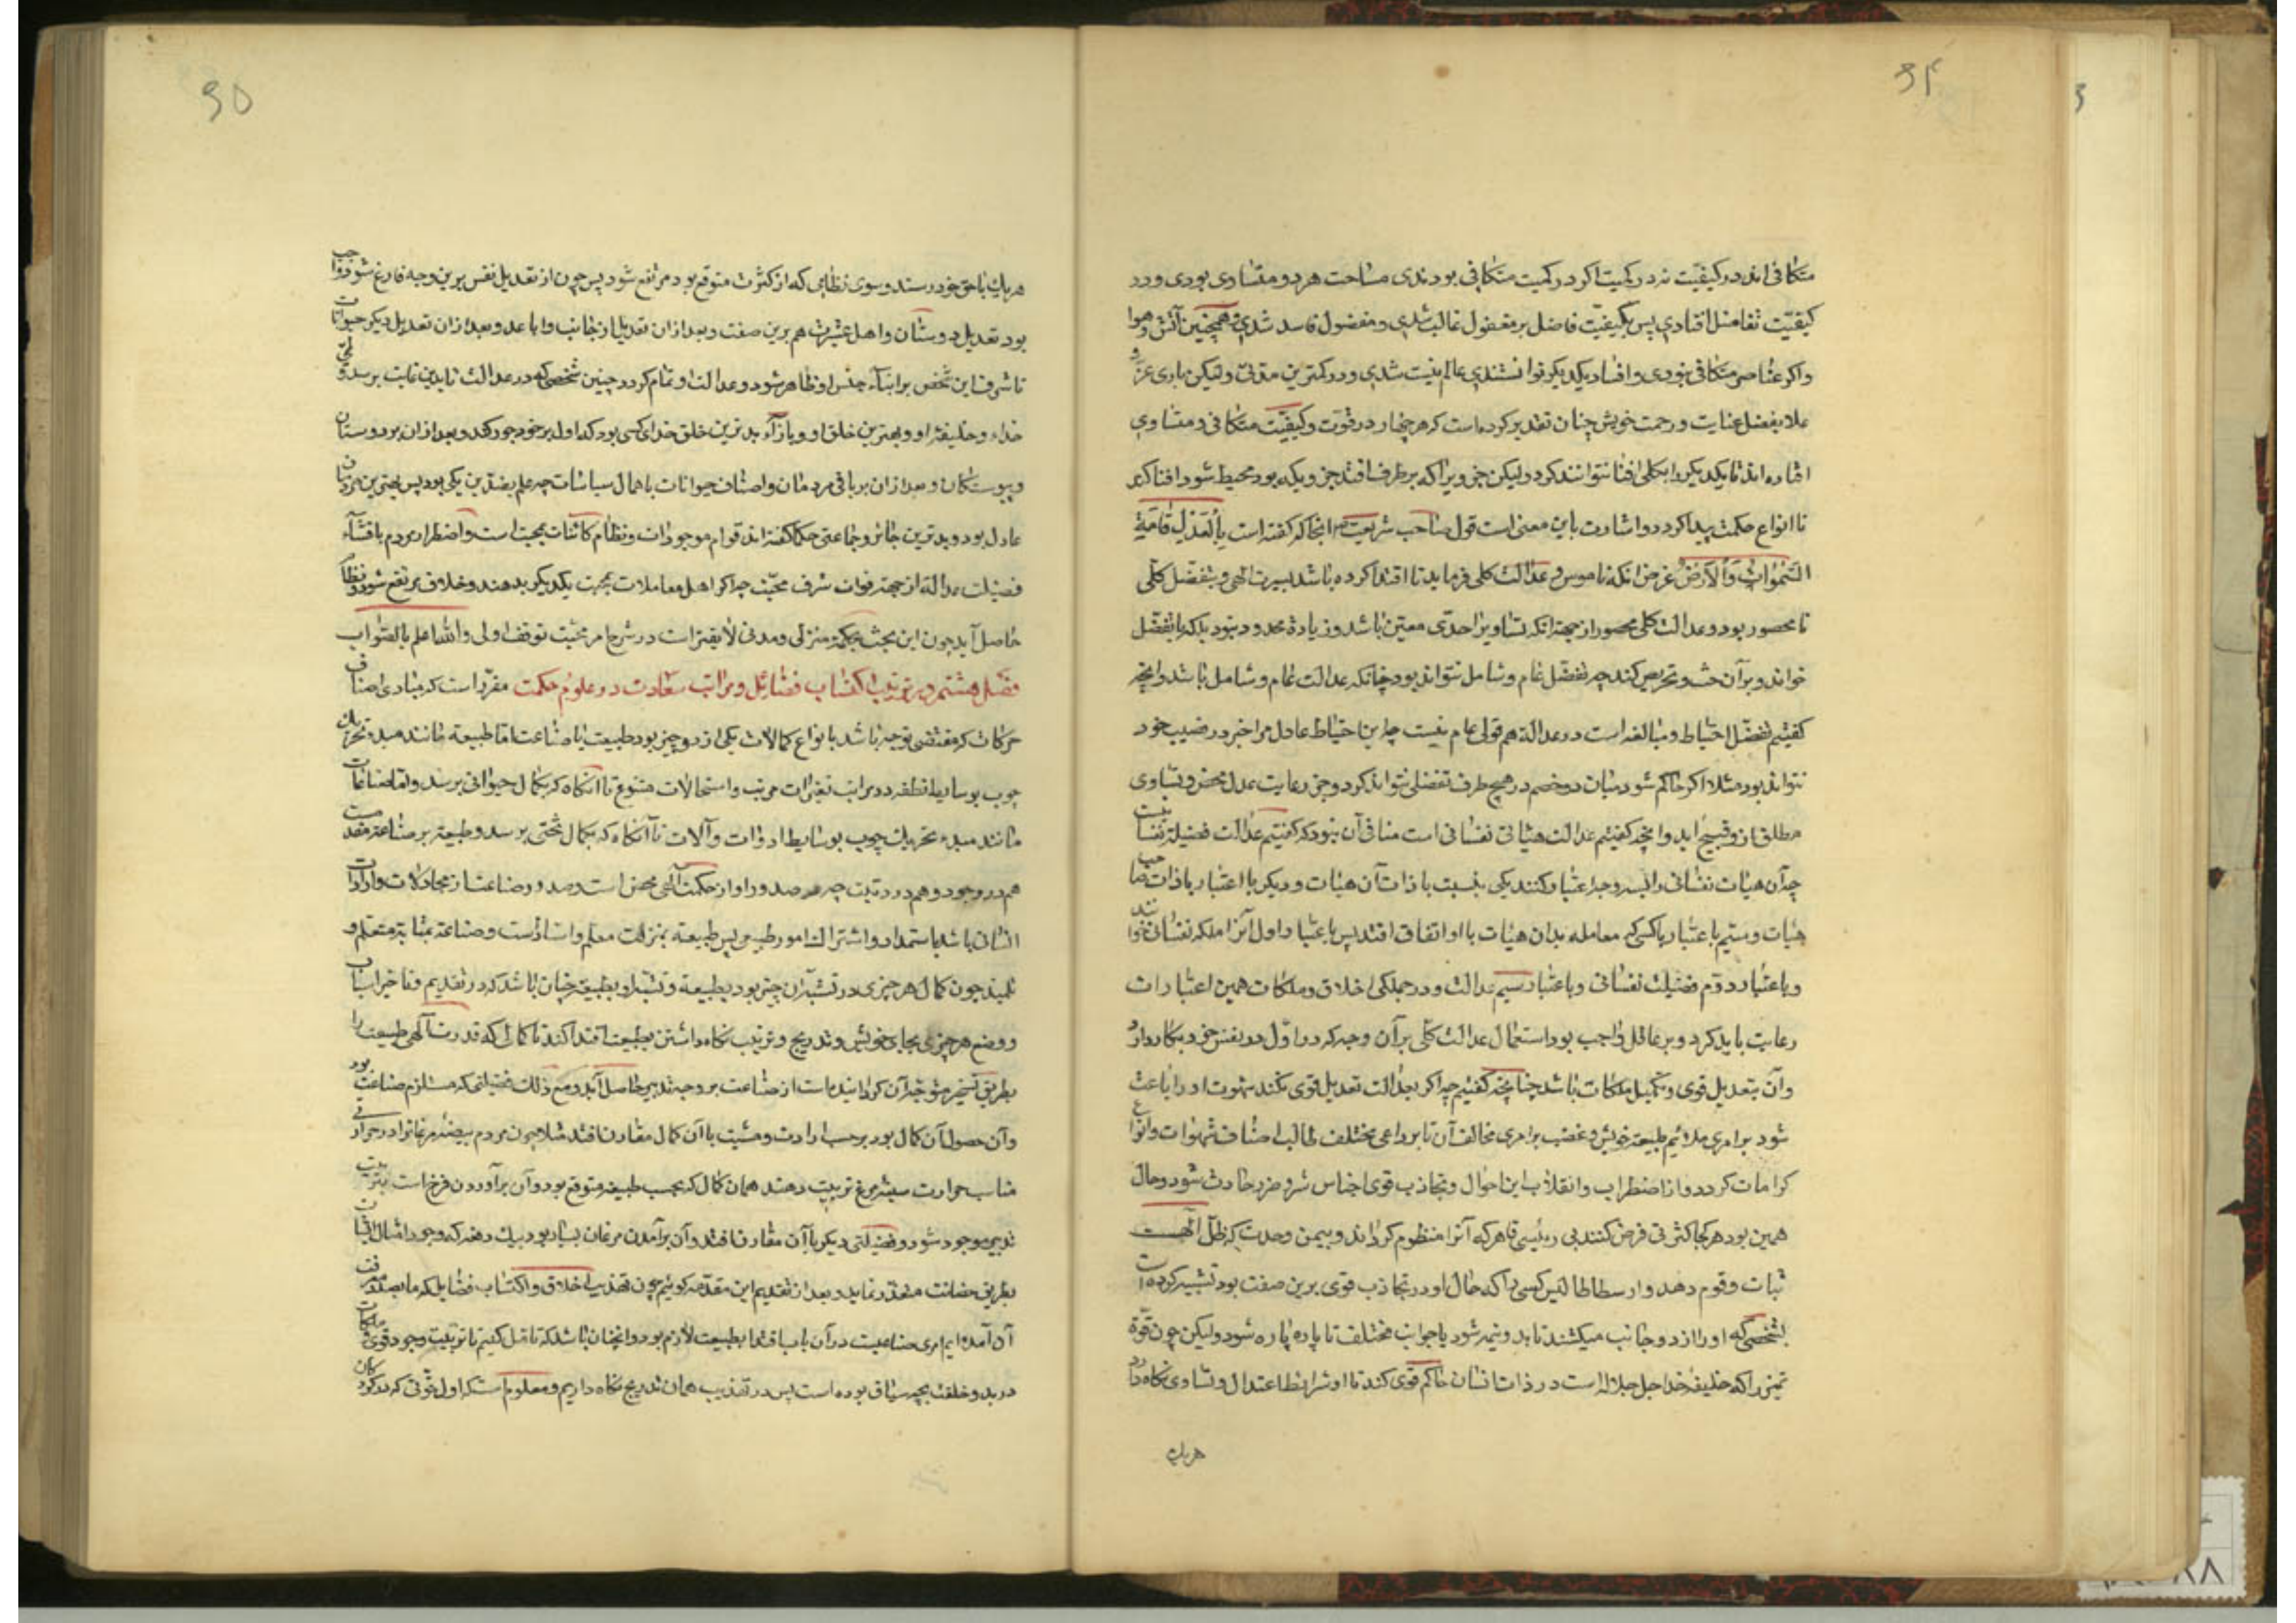 ۶۴
متکافی‌اند در کیفیت نه در کمیت اکر در کمیت متکافی بودندی مساحت هر دو متساوی بودی و در
کیفیت تفاضل افتادی پس بکیفیت فاضل بر مفضول غالب شدی و مفضول فاسد شدی و همچنین آتش و هوا
و اکر عناصر متکافی نبودی و افساد یکدیکر توانستندی عالم نیست شدی در کمترین مدتی ولیکن باری عز و
علا بفضل عنایت و رحمت خویش چنان تقدیر کرده است که هر چهار در قوت و کیفیت متکافی و متساوی
افتاده اند تا یکدیکر را بکلی افنا نتوانند کرد ولیکن جزویرا که بر طرف افتد جزویکه بود محیط شود افنا کند
تا انواع حکمت پیدا کردد و اشارت باین معنی است قول صاحب شریعت ص انجا که کفته است بالعدل قامة
السموات والارض غرض انکه ناموس عدالت کلی فرماید تا اقتدا کرده باشد بسیرت الهی و بتفضل کلی
نا محصور بود و عدالت کلی محصور از جهة انکه تساویرا حدی معین باشد و زیادة محدود نبود بلکه با تفضل
خواند و بر آن حث و تحریص کند چه تفضل عام و شامل نتواند بود چنانکه عدالت عام و شامل باشد و انچه
کفتیم تفضل احتیاط و مبالغه است در عدالة هم قولی عام نیست چه این احتیاط عادل مرا خبر در نصیب خود
نتواند بود مثلا اکر حاکم شود میان دو خصم در هیچ طرف تفضل نتواند کرد و جز رعایت عدل محض و تساوی
مطلق از و قبیح اید و انچه کفتیم عدالت هیأتی نفسانی است منافی آن نبود که کفتیم عدالت فضیلة نفسانیست
چه آن هیأت نفسانی را بسه وجه اعتبار کنند یکی بنسبت با ذات آن هیأت و دیکر با اعتبار با ذات صاحب
هیأت و سیم با عتبار با کسی که معامله بدان هیأت با او اتفاق افتد پس باعتبار اول آنرا ملکه نفسانی خوانند
و باعتبار دوم فضیلت نفسانی و باعتبار سیم عدالت و در جملکی اخلاق و ملکات همین اعتبارات
رعایت باید کرد و بر عاقل واجب بود استعمال عدالت کلی بر آن وجه که در اول در نفس خود بکار دارد
و آن بتعدیل قوی و تکمیل ملکات باشد چنانچه کفتیم چه اکر بعدالت تعدیل قوی نکند شهوت او را باعث
شود بر امری ملائم طبیعة خویش و غضب بر امری مخالف آن تا بر داعی مختلف طالب اصناف شهوات و انواع
کرامات کردد و از اضطراب و انقلاب این احوال و تجاذب قوی اجناس شر و ضرر حادث شود و حال
همین بود هر کجا کثرتی فرض کنند بی رئیسی قاهر که آنرا منظوم کرداند و بیمن وحدت که ظل الهست
ثبات و قوام دهد و ارسطاطالیس کسی را که حال او در تجاذب قوی برین صفت بود تشبیه کرده است
بشخصی که او را از دو جانب میکشند تا بدو نیمه شود یا جوانب مختلف تا پاره پاره شود ولیکن چون قوة
تمیز را که خلیفة خدا جل جلاله است در ذات انسان حاکم قوی کند تا او شرایط اعتدال و تساوی نکاه دارد
هر یک
۶۵
هر یک با حق خود رسند و سوی نظامی که از کثرت متوقع بود مرتفع شود پس چون از تعدیل نفس برین وجه فارغ شود واجب
بود تعدیل دوستان و اهل عشیرت هم برین صفت و بعد از ان تعدیل اجانب و اباعد و بعد از ان تعدیل دیکر حیوانات
تا شرف این شخص بر ابنآء جنس او ظاهر شود و عدالت او تمام کردد و چنین شخصی که در عدالت تا بدین غایت برسد ولی
خداء و خلیفة او و بهترین خلق او و بازآء بدترین خلق خدای کسی بود که اول بر خود جور کند و بعد از ان بر دوستان
و پیوستکان و بعد از ان بر باقی مردمان و اصناف حیوانات باهمال سیاسات چه علم بضدین یکی بود پس بهترین مردمان
عادل بود و بدترین جائر و جماعتی حکما کفته اند قوام موجودات و نظام کائنات بمحبت است و اضطرار مردم باقتنآء
فضیلت عدالة از جهة فوات شرف محبت چه اکر اهل معاملات بمحبت یکدیکر بدهند و خلاف مرتفع شود و نظام
حاصل آید چون این بحث بحکمة منزلی و مدنی لایقتر است در شرح امر محبت توقف اولی والله اعلم بالصواب
فصل هشتم در ترتیب اکتساب فضائل و مراتب سعادت در علوم حکمت مقرر است که مبادی اصناف
حرکات که مقتضی توجه باشد بانواع کمالات یکی از دو چیز بود طبیعت یا صناعت اما طبیعة مانند مبدء تحریک
چوب بوسایط نطفه در مراتب تغیرات مرتب و استحالات متنوع تا انکاه که بکمال حیوانی برسد و اما صناعت
مانند مبدء تحریک چوب بوسایط ادوات و آلات تا آنکاه که بکمال تختی برسد و طبیعة بر صناعة مقدمست
هم در وجود و هم در رتبت چه صدور او از حکمت الهی محض است و صدور صناعت از محاولات و ارادات
انسانی باشد باستمداد و اشتراک امور طبیعی پس طبیعة بمنزلت معلم و استادست و صناعة بمثابة متعلم و
تلمیذ چون کمال هر چیزی در تشبه آن چیز بود بطبیعة و تشبه او بطبیعة چنان باشد که در تقدیم و تاخیر اسباب
و وضع هر چیزی بجای خویش و تدریج و ترتیب نکاه داشتن بطبیعت اقتدا کند تا کمالی که قدرت آلهی طبیعت را
بطریق تسخیر متوجه آن کردانیده است از صناعت بر وجه تدبیر حاصل آید و مع ذلک فضیلتی که مستلزم صناعت بود
و آن حصول آن کمال بود بر حسب ارادت و مشیت با آن کمال مقارن افتد مثلا چون مردم بیضه مرغانرا در حرارتی
مناسب حرارت سینه مرغ تربیت دهند همان کمال که بحسب طبیعة متوقع بود و آن برآوردن فرخ است بتربیت
تدبیر موجود شود و فضیلتی دیکر با آن مقارن افتد و آن برآمدن مرغان بسیار بود بیک دفعه که وجود امثال ایشان
بطریق حضانت متعذر نماید و بعد از تقدیم این مقدمه کوئیم چون تهذیب اخلاق و اکتساب فضایل که ما بصدد معرفت
آن آمده ایم امری صناعیست در آن باب اقتدا بطبیعت لازم بود و انچنان باشد که تامل کنیم تا ترتیب وجود قوی و ملکات
در بدو خلقت بچه سیاق بوده است پس در تهذیب همان تدریج نکاه داریم و معلوم است که اول قوتی که در کودکان